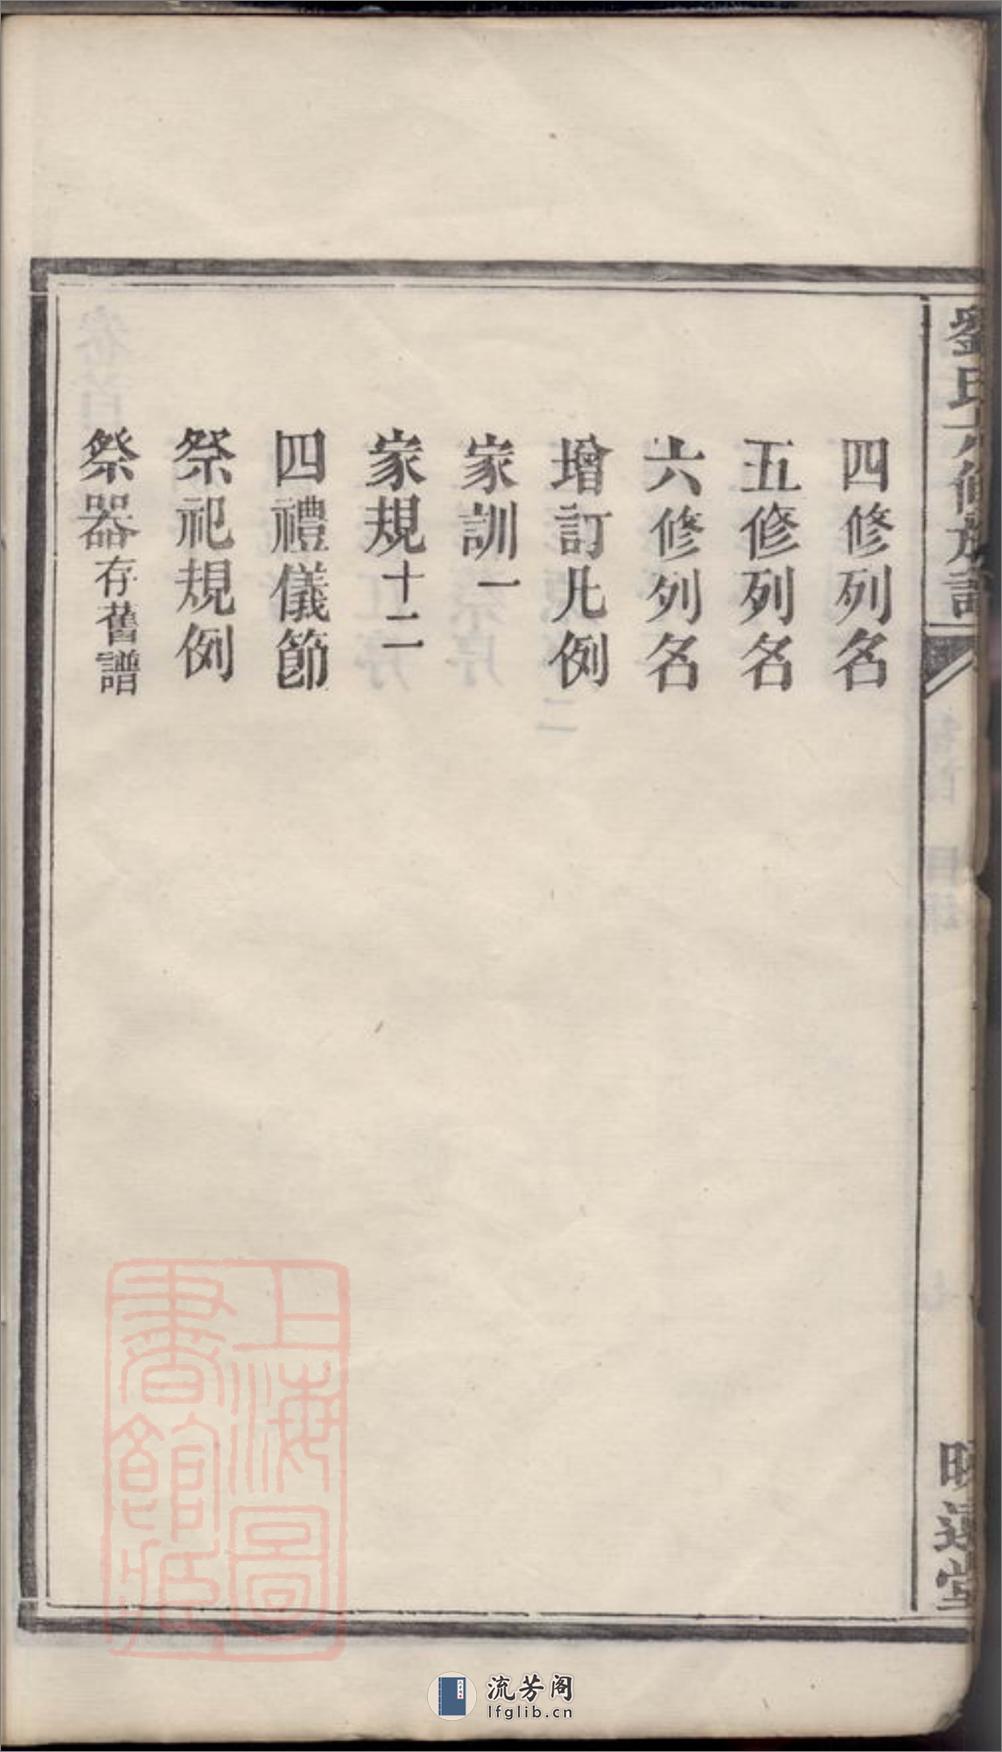 劉氏六修族譜
四修列名
五修列名
六修列名
增訂凡例
家訓一
家規十二
四禮儀節
祭祀規例
祭器存舊譜
上海圖書館藏
流芳阁
lfglib.cn